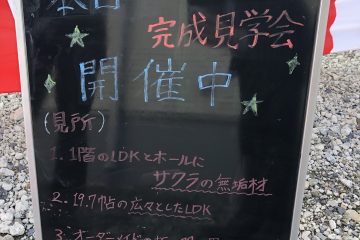 本日
完成見学会
開催中
(見所)
1. 1階のLDKとホールに
サクラの無垢材
2. 19.7帖の広々としたLDK
3. オーダーメイドの